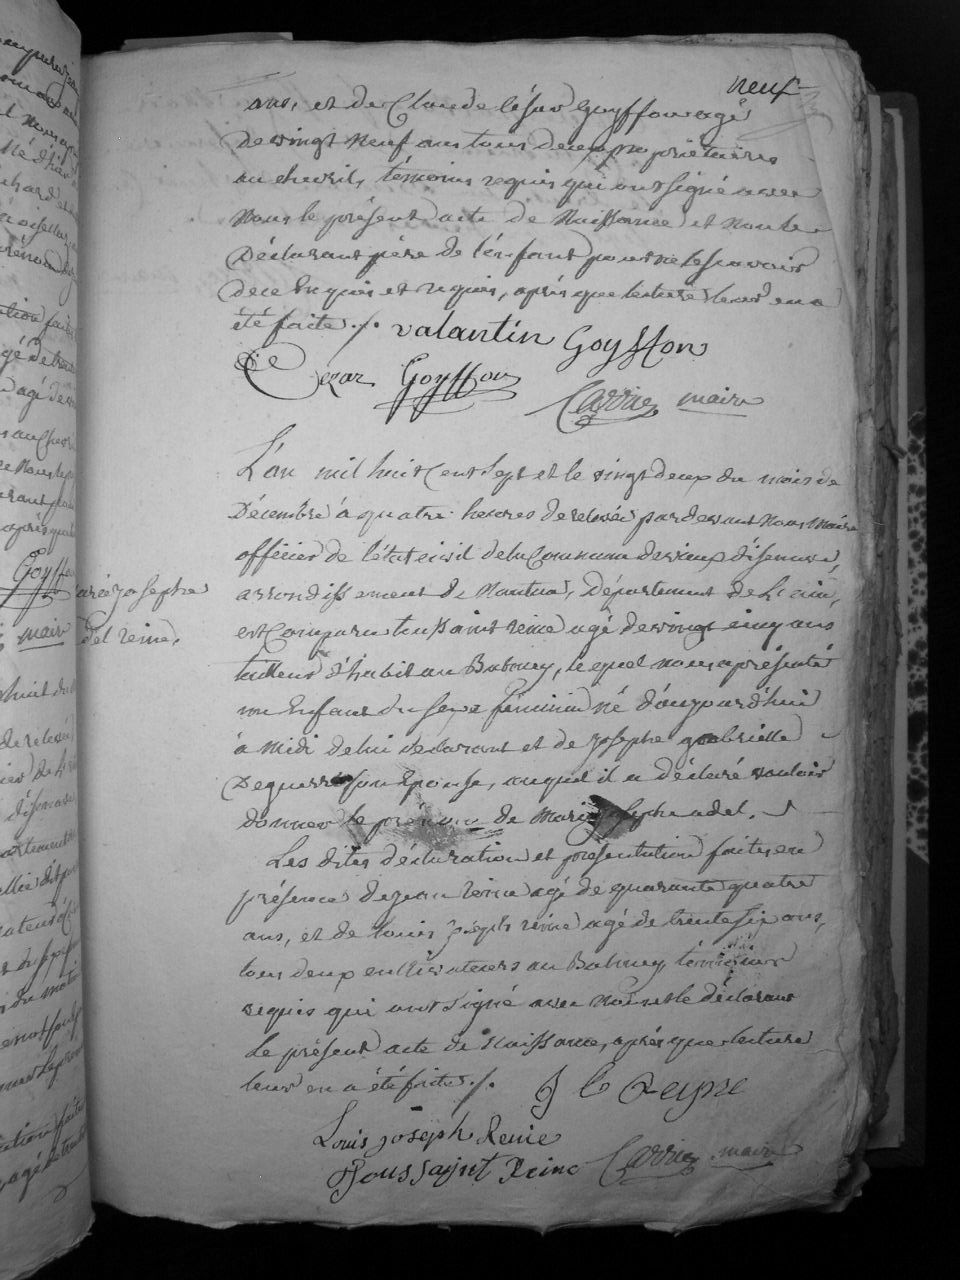 neuf
ans, et de Claude César Goyffon agé
de vingt neuf ans tous deux propriétaires
au chevril, témoins requis qui ont signé avec
nous le présent acte de Naissance et non le
Déclarant père de l'enfant pour ne le scavoir
de ce Enquis et requis, après que lecture leur en a
été faite ./.
valantin Goyffon
Cezar Goyffon
Carrier maire
L'an mil huit Cent Sept et le vingt deux du mois de
Décembre à quatre heures de relevée pardevant nous Maire
officier de l'état civil de la Commune de vieux d'isenave,
arrondissement de Nantua, Département de L'ain,
est Comparu toussaint reine agé de vingt cinq ans
tailleur d'habit au Balmey, lequel nous a présenté
un Enfant du sexe féminin né d'aujourd'hui
à midi de lui déclarant et de Josephe gabrielle
Deguerre son Epouse, auquel il a déclaré vouloir
donner le prénom de Marie josephe adel.
Les dites déclaration et présentation faites en
présence de jean reine agé de quarante quatre
ans, et de louis joseph reine agé de trente six ans,
tous deux cultivateurs au Balmey, témoins
requis qui ont signé avec nous et le déclarant
Le présent acte de Naissance, après que lecture
leur en a été faite ./.
Louis joseph Reine
Toussaint Reine
Carrier maire
marie josephe
adel reine.
Goyffon
maire